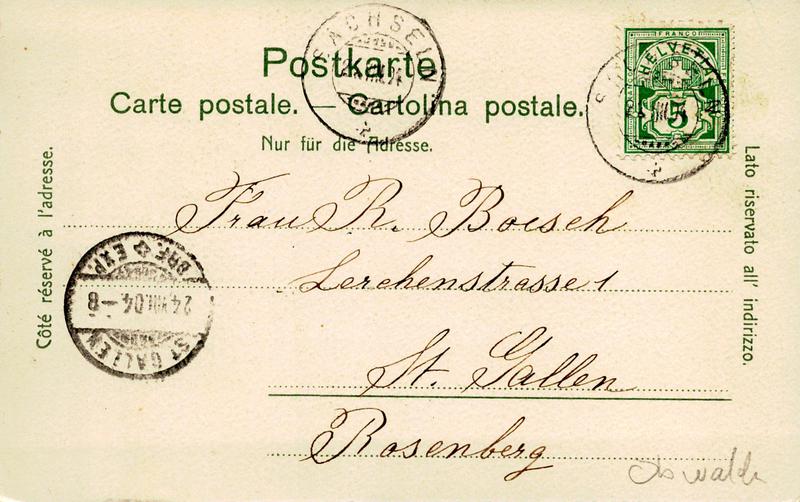 SACHSELN
FRANCO
HELVETIA
5
Postkarte
Carte postale. — Cartolina postale.
Nur für die Adresse.
Côté réservé à l'adresse.
Lato riservato all' indirizzo.
Frau R. Boesch
Lerchenstrasse 1
St. Gallen
Rosenberg
ST. GALLEN
24.VIII.04-8
BRF. EXP.
Obwalden